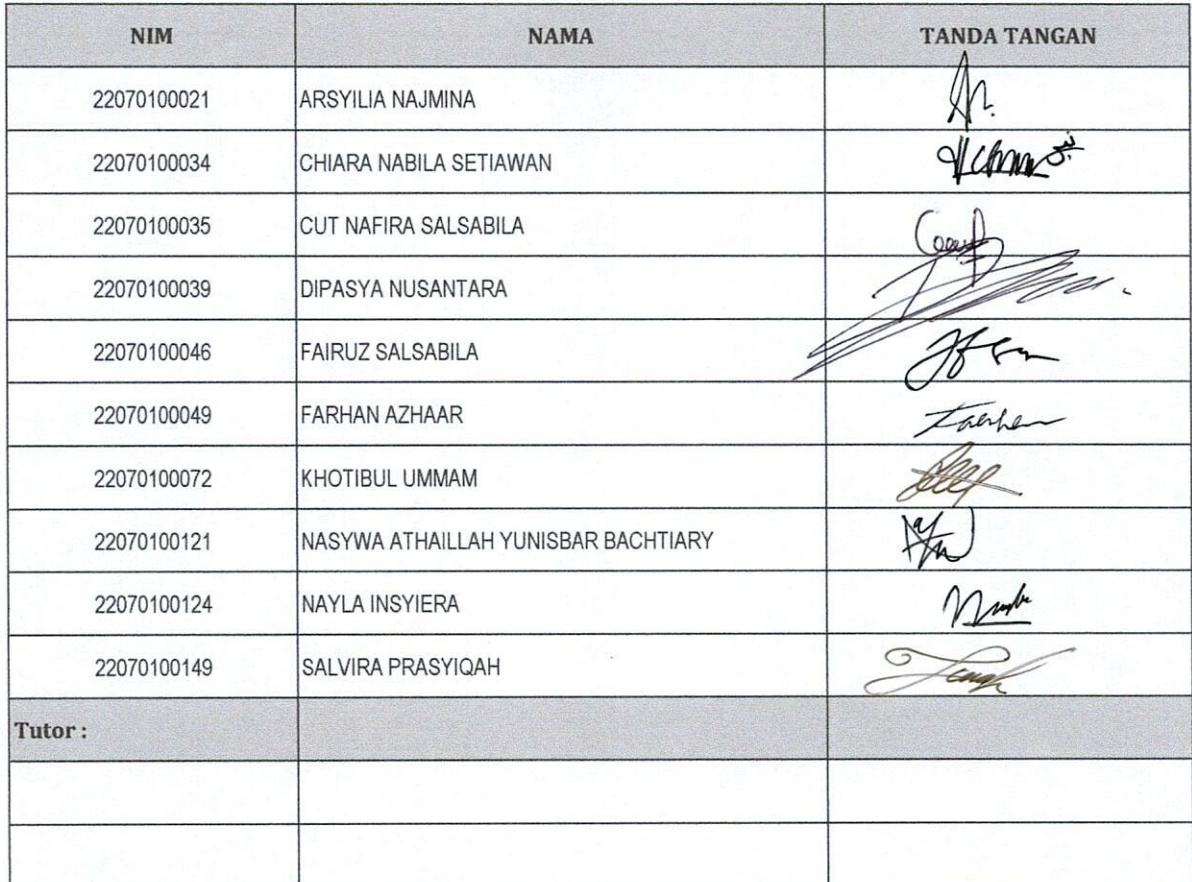 NIM NAMA TANDA TANGAN
22070100021 ARSYILIA NAJMINA
22070100034 CHIARA NABILA SETIAWAN
22070100035 CUT NAFIRA SALSABILA
22070100039 DIPASYA NUSANTARA
22070100046 FAIRUZ SALSABILA
22070100049 FARHAN AZHAAR
22070100072 KHOTIBUL UMMAM
22070100121 NASYWA ATHAILLAH YUNISBAR BACHTIARY
22070100124 NAYLA INSYIERA
22070100149 SALVIRA PRASYIQAH
Tutor :